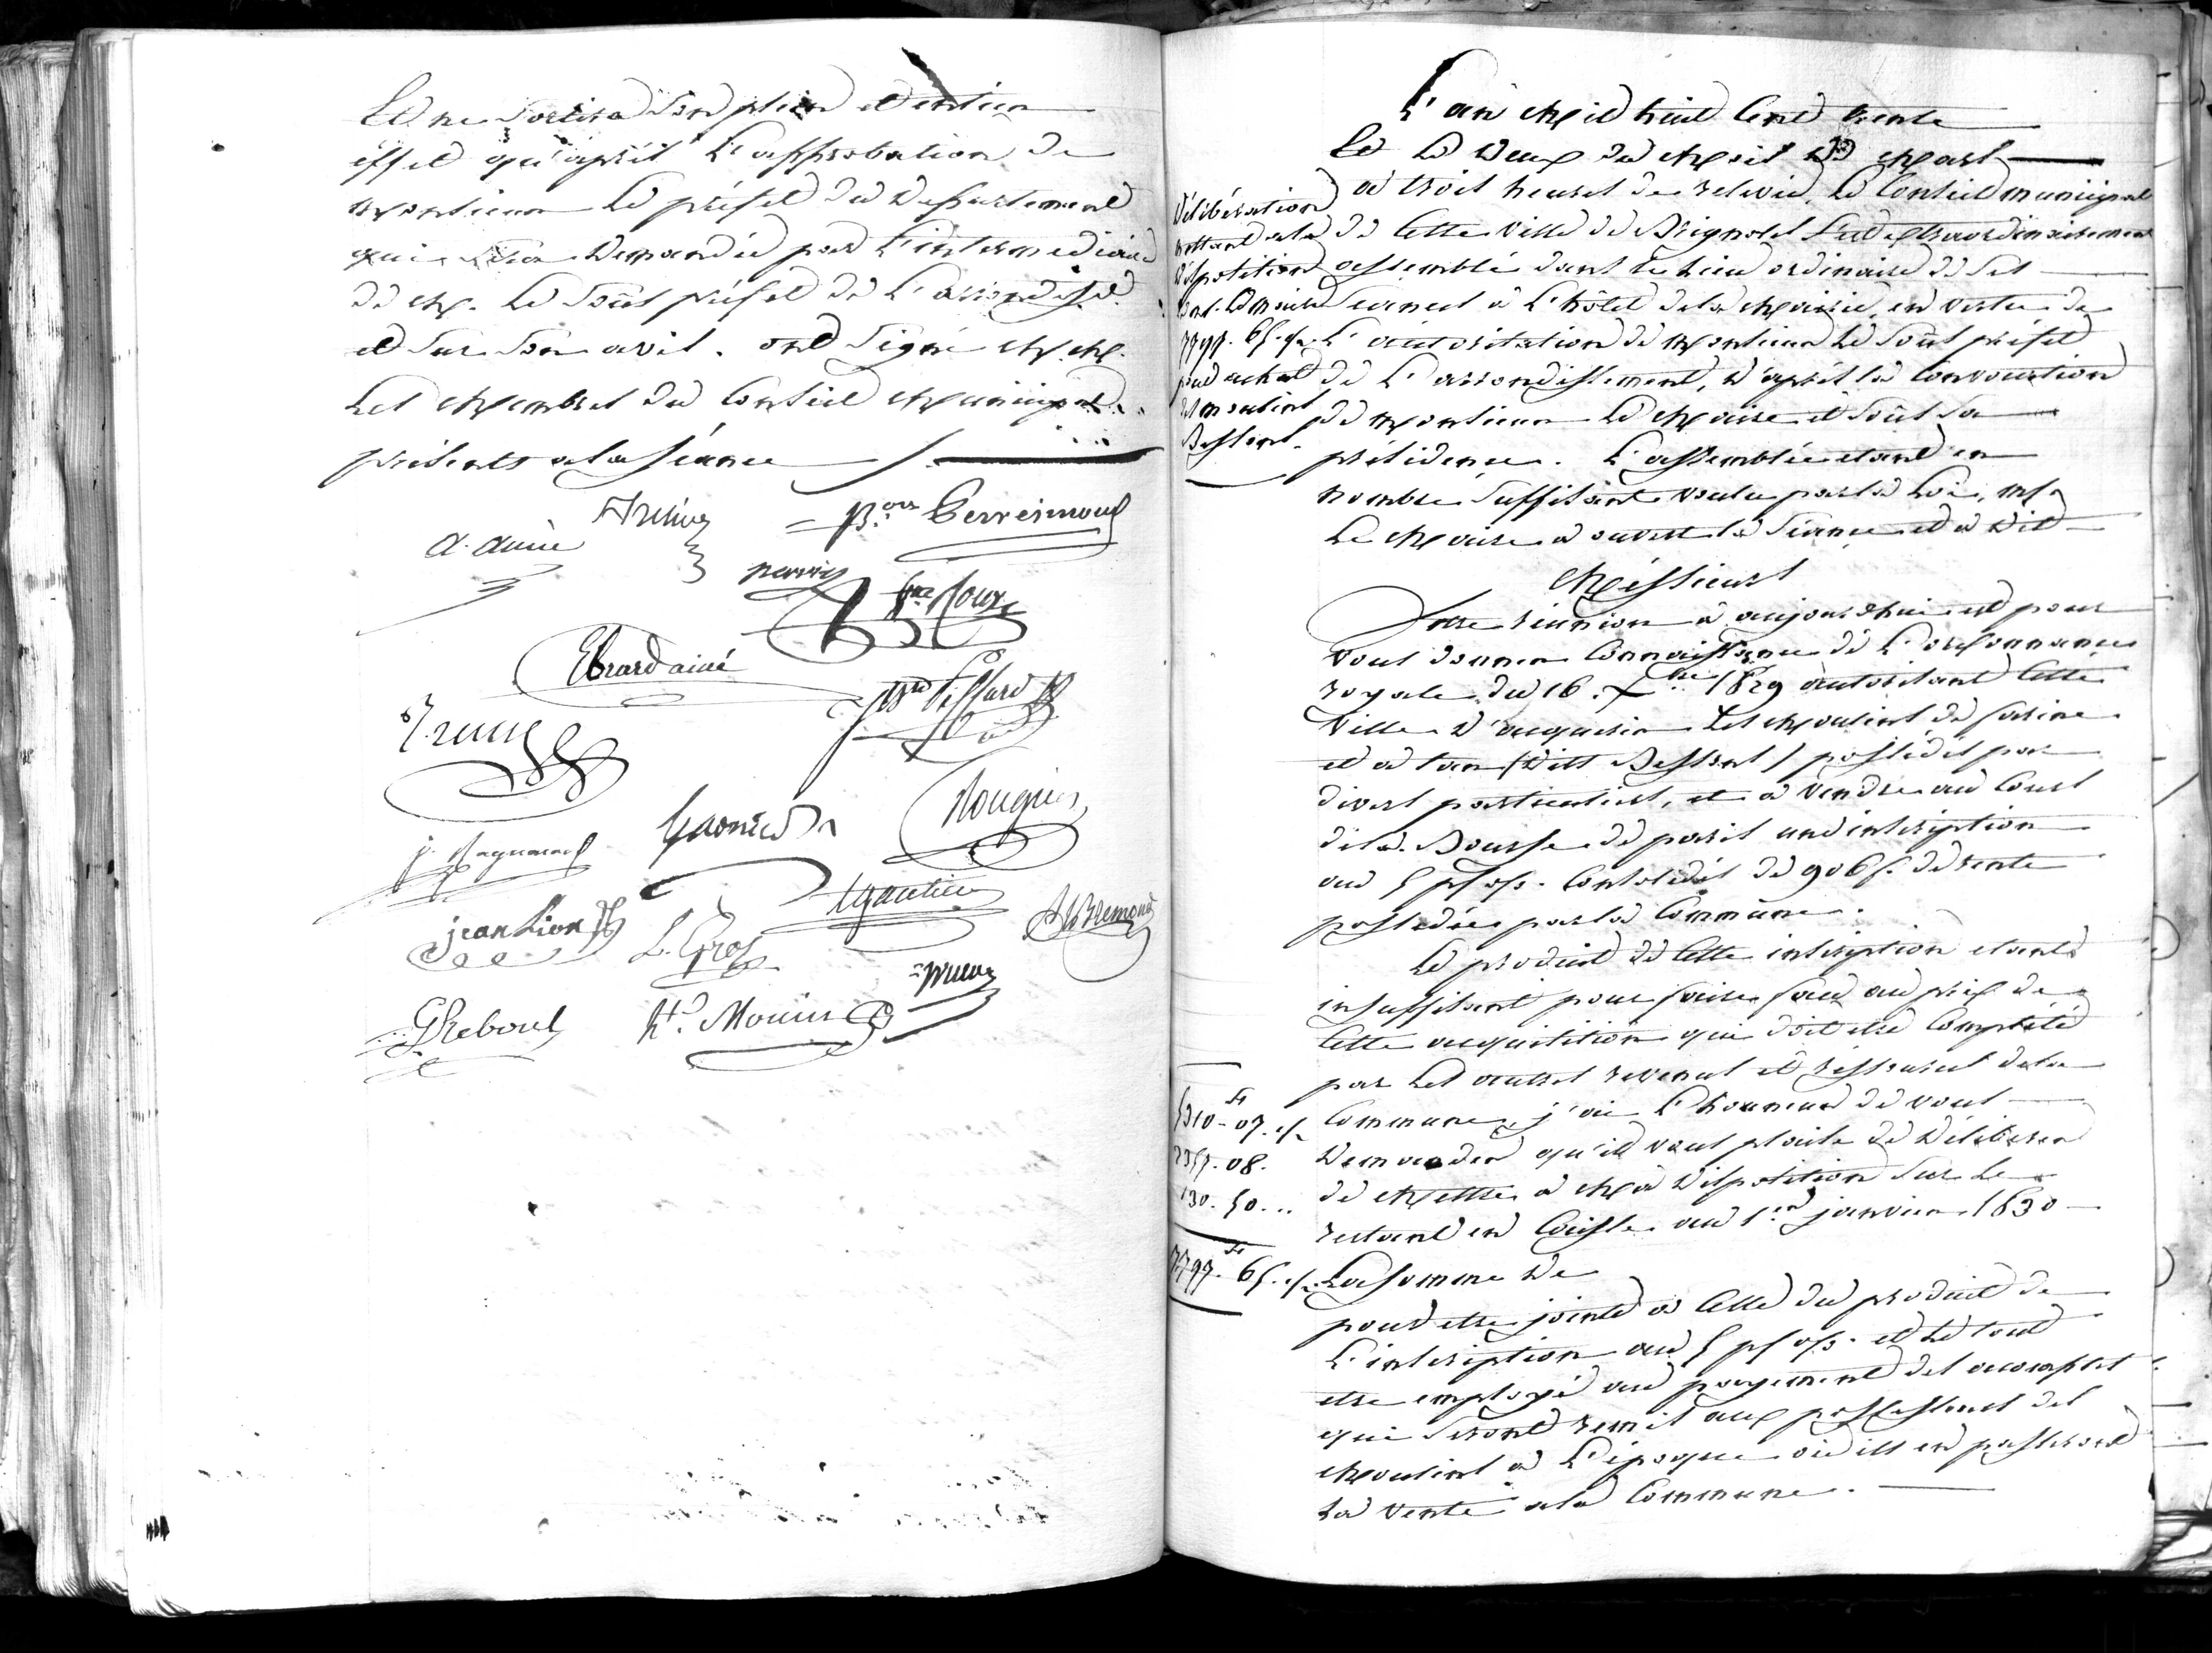 Et ne sortira son plein et entier
effet qu'après l'approbation de
monsieur le préfet du département
qui sera demandée par l'intermédiaire
de M. le sous préfet de l'arrondisst.
et sur son avis. ont signé M.M.
les membres du conseil municipal
présents à la séance
= B.on Perreimond
A. aurie
fçois Roux
Ebrard ainé
Garnier
Rougier
jean Lion
L. Gros
Lgautier
Bremond
G Reboul
ht. Mouin
L'an mil huit cent trente
Et le deux du mois de mars
à trois heures de relevée, le conseil municipal
de cette ville de Brignoles s'est extraordinairement
assemblé dans le lieu ordinaire de ses
séances à l'hôtel de la mairie, en vertu de
l'autorisation de monsieur le sous préfet
de l'arrondissement, d'après la convocation
de monsieur le maire et sous sa
présidence. L'assemblée étant en
nombre suffisant voulu par la loi, mr.
le maire a ouvert la séance et a dit
Délibération
mettant à la
disposition
de mr. le maire
7797. 65. c/.
pour achat
des moulins
Bessons.
Messieurs
Votre réunion d'aujourd'hui est pour
vous donner connaissance de l'ordonnance
royale du 16. Xbre 1829 autorisant cette
ville d'acquérir les moulins de farine
et à tan (dits Bessons) possédés par
divers particuliers, et à vendre au cours
de la Bourse de paris une inscription
au 5 p% consolidés de 906 f. de rente
possédée par la commune.
Le produit de cette inscription étant
insuffisant pour faire face au prix de
cette acquisition qui doit être complété
par les autres revenus et ressources de la
commune, j'ai l'honneur de vous
demander qu'il vous plaise de délibérer
de mettre à ma disposition sur le
restant en caisse au 1er janvier 1830
la somme de
5310 - 07. c/
2357. 08.
130. 50...
7797. 65. c/.
pour être jointe à celle du produit de
l'inscription au 5 p% et le tout
être employé au payement des acomptes
qui seront remis aux possesseurs des
moulins à l'époque où ils en passeront
la vente à la commune.